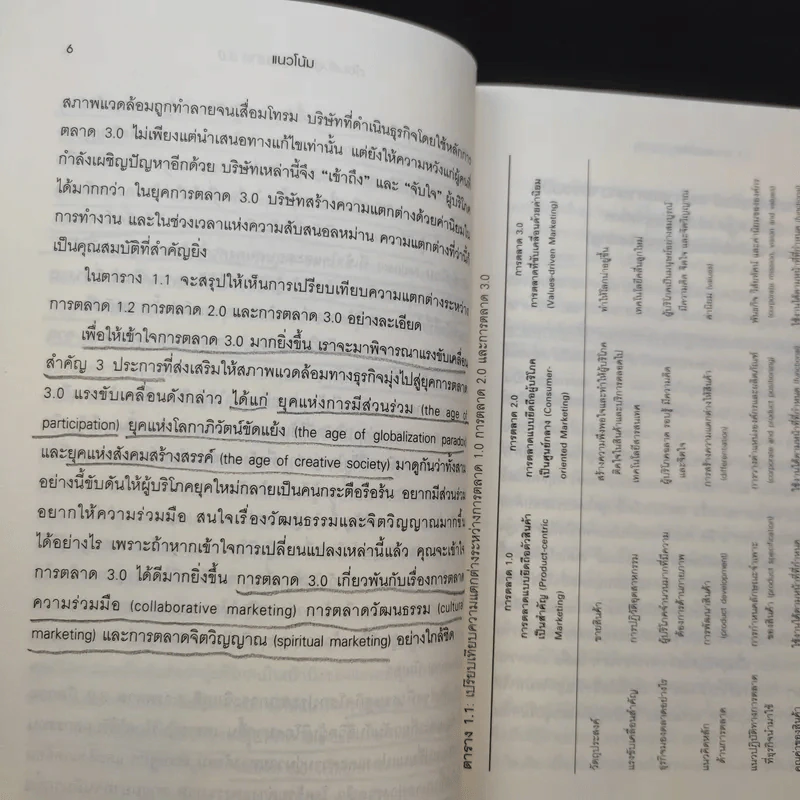 6
แนวโน้ม
สภาพแวดล้อมถูกทำลายจนเสื่อมโทรม บริษัทที่ดำเนินธุรกิจโดยใช้หลักการ
ตลาด 3.0 ไม่เพียงแต่นำเสนอทางแก้ไขเท่านั้น แต่ยังให้ความหวังแก่ผู้คนที่
กำลังเผชิญปัญหาอีกด้วย บริษัทเหล่านี้จึง “เข้าถึง” และ “จับใจ” ผู้บริโภค
ได้มากกว่า ในยุคการตลาด 3.0 บริษัทสร้างความแตกต่างด้วยค่านิยมใน
การทำงาน และในช่วงเวลาแห่งความสับสนอลหม่าน ความแตกต่างที่ว่านี้
เป็นคุณสมบัติที่สำคัญยิ่ง
ในตาราง 1.1 จะสรุปให้เห็นการเปรียบเทียบความแตกต่างระหว่าง
การตลาด 1.2 การตลาด 2.0 และการตลาด 3.0 อย่างละเอียด
เพื่อให้เข้าใจการตลาด 3.0 มากยิ่งขึ้น เราจะมาพิจารณาแรงขับเคลื่อน
สำคัญ 3 ประการที่ส่งเสริมให้สภาพแวดล้อมทางธุรกิจมุ่งไปสู่ยุคการตลาด
3.0 แรงขับเคลื่อนดังกล่าว ได้แก่ ยุคแห่งการมีส่วนร่วม (the age of
participation) ยุคแห่งโลกาภิวัตน์ขัดแย้ง (the age of globalization paradox)
และยุคแห่งสังคมสร้างสรรค์ (the age of creative society) มาดูกันว่าทั้งสาม
อย่างนี้ขับดันให้ผู้บริโภคยุคใหม่กลายเป็นคนกระตือรือร้น อยากมีส่วนร่วม
อยากให้ความร่วมมือ สนใจเรื่องวัฒนธรรมและจิตวิญญาณมากขึ้น
ได้อย่างไร เพราะถ้าหากเข้าใจการเปลี่ยนแปลงเหล่านี้แล้ว คุณจะเข้าใจ
การตลาด 3.0 ได้ดีมากยิ่งขึ้น การตลาด 3.0 เกี่ยวพันกับเรื่องการตลาด
ความร่วมมือ (collaborative marketing) การตลาดวัฒนธรรม (cultural
marketing) และการตลาดจิตวิญญาณ (spiritual marketing) อย่างใกล้ชิด
ตาราง 1.1: เปรียบเทียบความแตกต่างระหว่างการตลาด 1.0 การตลาด 2.0 และการตลาด 3.0
การตลาด 1.0
การตลาดแบบยึดถือตัวสินค้า
เป็นสำคัญ (Product-centric
Marketing)
การตลาด 2.0
การตลาดแบบยึดถือผู้บริโภค
เป็นศูนย์กลาง (Consumer-
oriented Marketing)
การตลาด 3.0
การตลาดที่ขับเคลื่อนด้วยค่านิยม
(Values-driven Marketing)
วัตถุประสงค์
ขายสินค้า
สร้างความพึงพอใจและทำให้ผู้บริโภค
ติดใจในสินค้าและบริการตลอดไป
ทำให้โลกน่าอยู่ขึ้น
แรงขับเคลื่อนสำคัญ
การปฏิวัติอุตสาหกรรม
เทคโนโลยีสารสนเทศ
เทคโนโลยีคลื่นลูกใหม่
ธุรกิจมองตลาดอย่างไร
ผู้บริโภคจำนวนมากที่มีความ
ต้องการด้านกายภาพ
ผู้บริโภคฉลาด รอบรู้ มีความคิด
และจิตใจ
ผู้บริโภคเป็นมนุษย์อย่างสมบูรณ์
มีความคิด จิตใจ และจิตวิญญาณ
แนวคิดหลัก
ด้านการตลาด
การพัฒนาสินค้า
(product development)
การสร้างความแตกต่างให้สินค้า
(differentiation)
ค่านิยม (values)
แนวปฏิบัติทางการตลาด
ที่ธุรกิจนำมาใช้
การกำหนดคุณลักษณะจำเพาะ
ของสินค้า (product specification)
การวางตำแหน่งองค์กรและผลิตภัณฑ์
(corporate and product positioning)
พันธกิจ วิสัยทัศน์ และค่านิยมขององค์กร
(corporate mission, vision and values)
คุณค่าของสินค้า